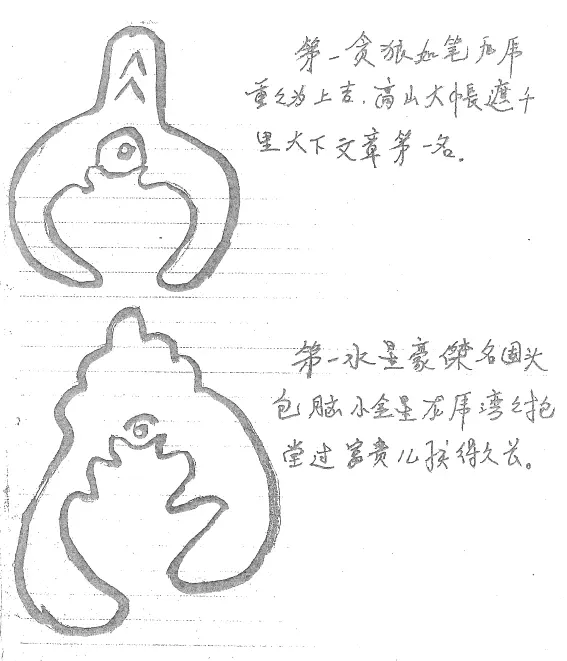 第一贪狼如笔龙虎
重々为上吉.高山大帳遮千
里天下文章第一名。
第一水星豪傑名圆头
包脑小金星龙虎湾々抱
堂过富贵儿孩得久长。